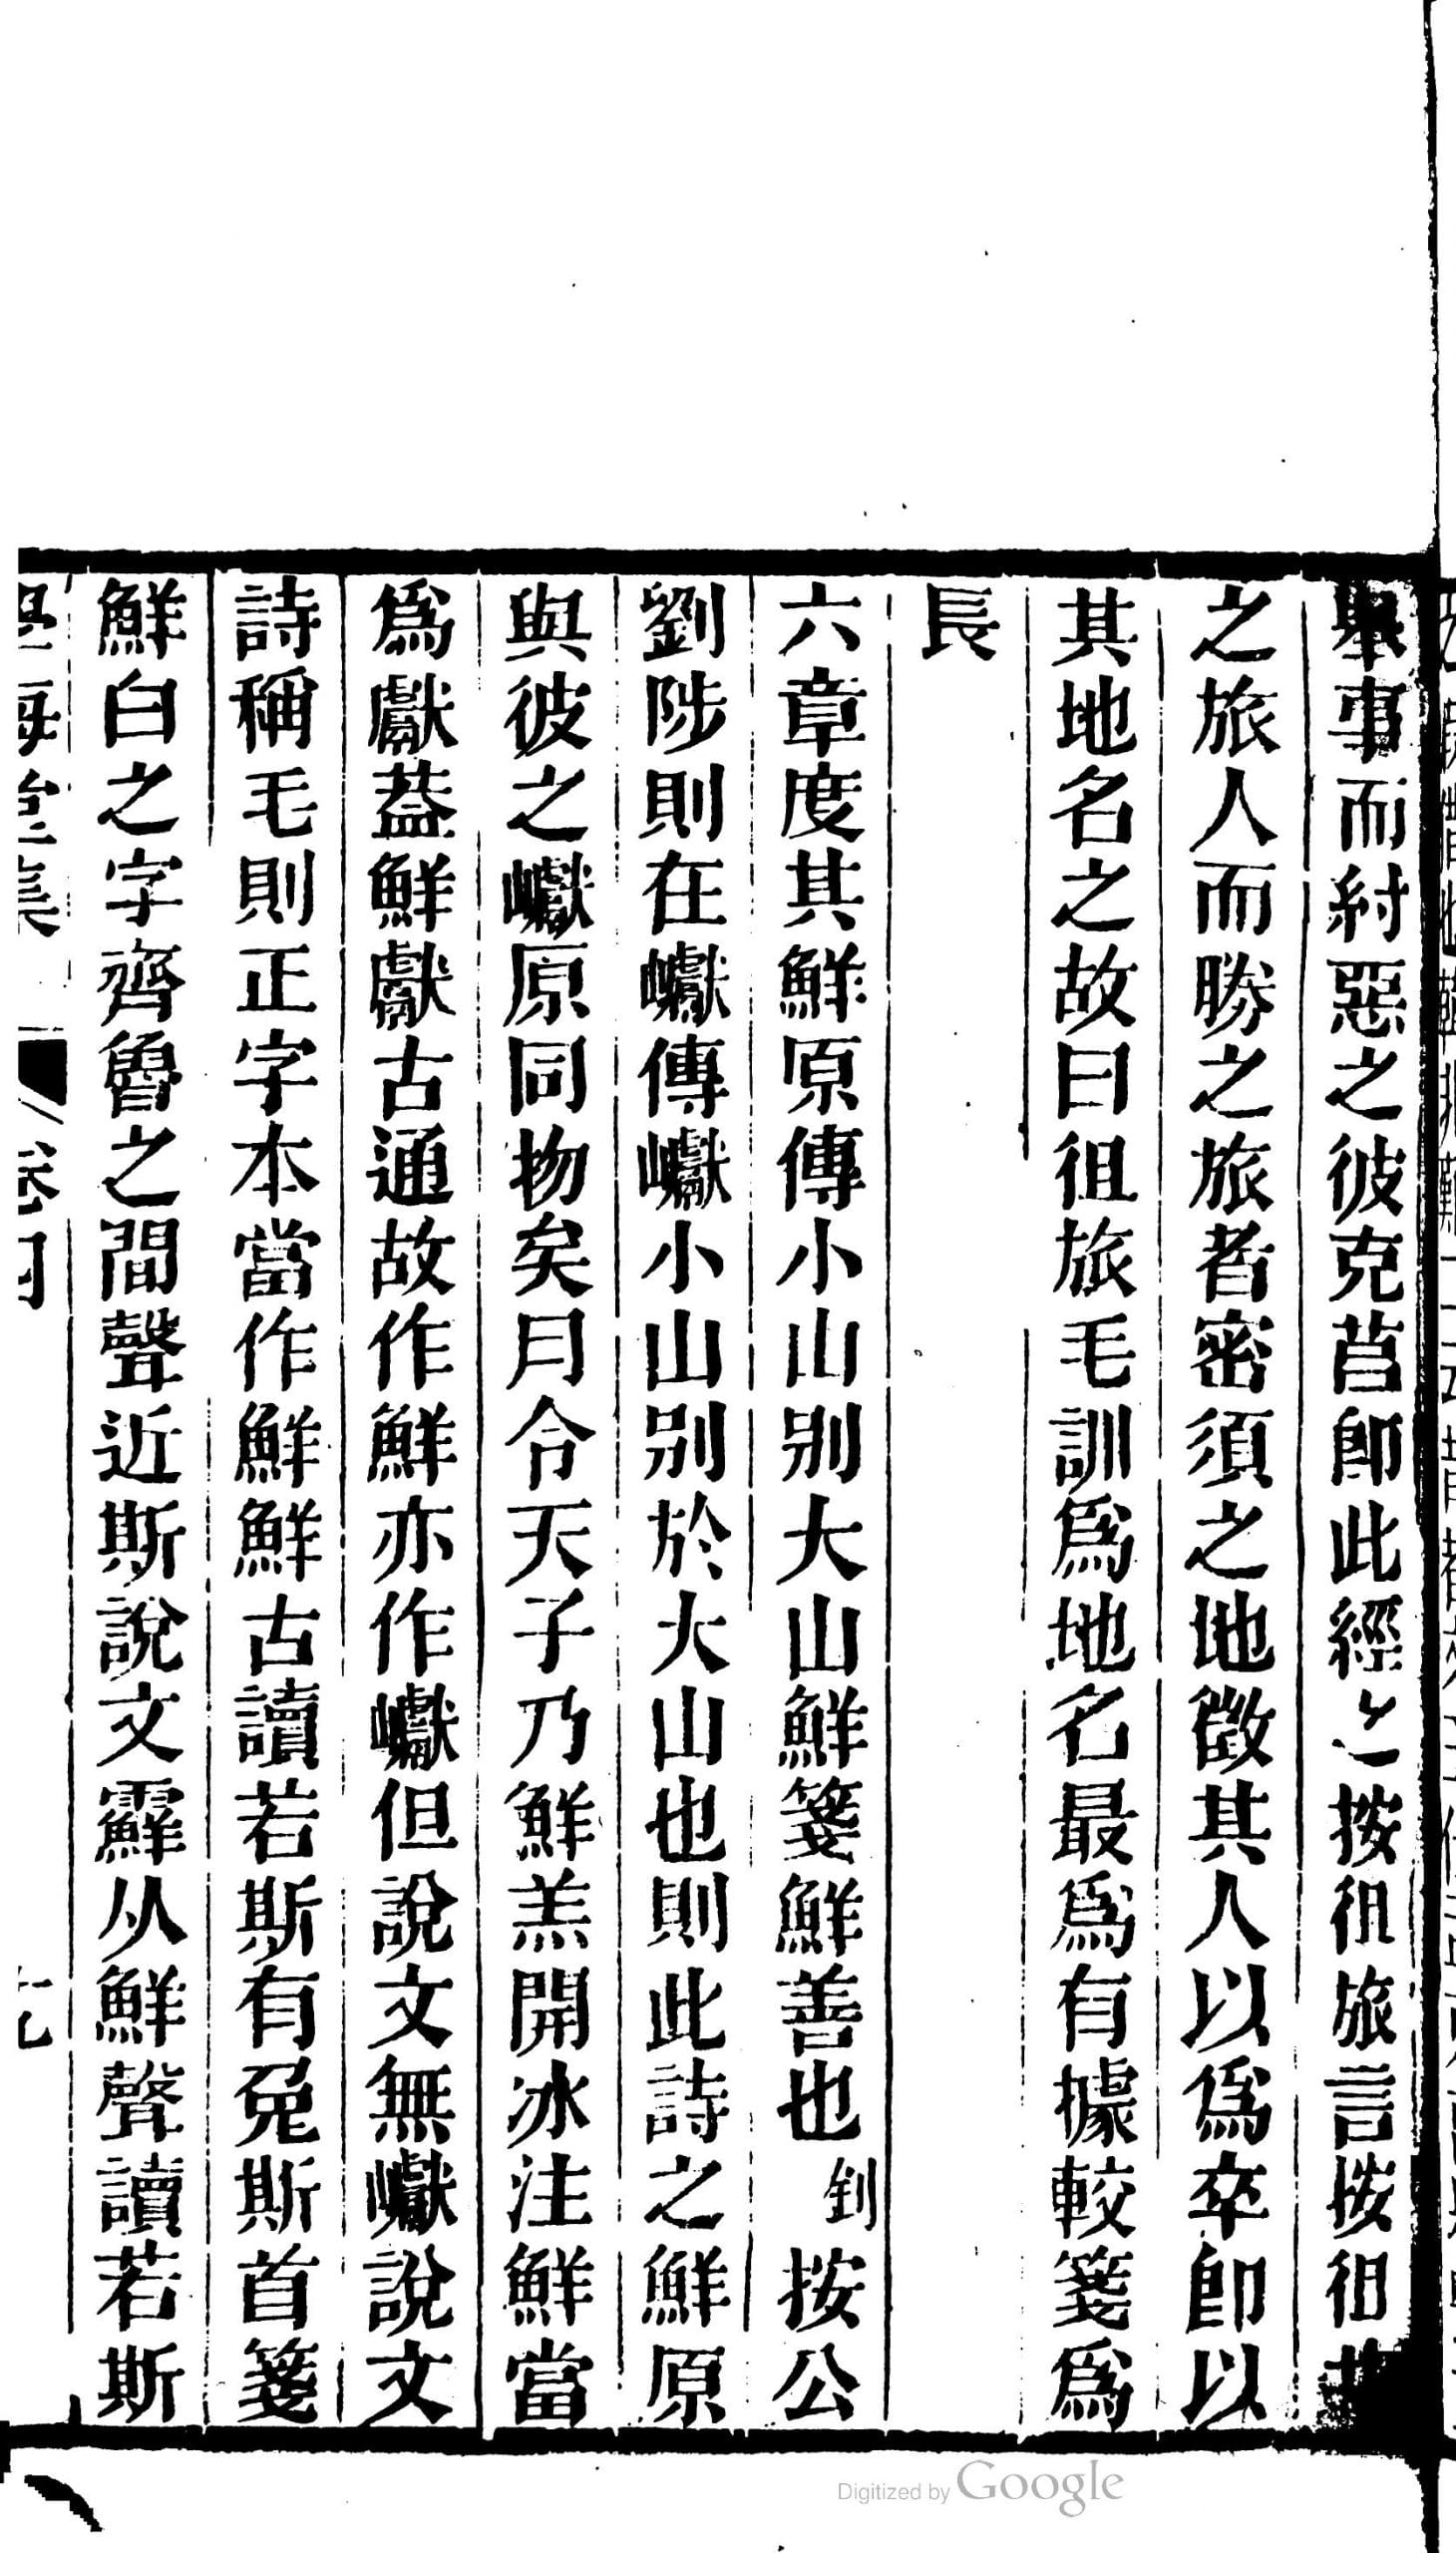 舉事而紂惡之彼克莒卽此經之按徂旅言按徂莒
之旅人而勝之旅者密須之地徵其人以爲卒卽以
其地名之故曰徂旅毛訓爲地名最爲有據較箋爲
長
六章度其鮮原傳小山別大山鮮箋鮮善也 釗 按公
劉陟則在巘傳巘小山別於大山也則此詩之鮮原
與彼之巘原同物矣月令天子乃鮮羔開冰注鮮當
爲獻葢鮮獻古通故作鮮亦作巘但說文無巘說文
詩稱毛則正字本當作鮮鮮古讀若斯有兔斯首箋
鮮白之字齊魯之間聲近斯說文霹从鮮聲讀若斯
學海堂集 卷四 十九
Digitized by Google